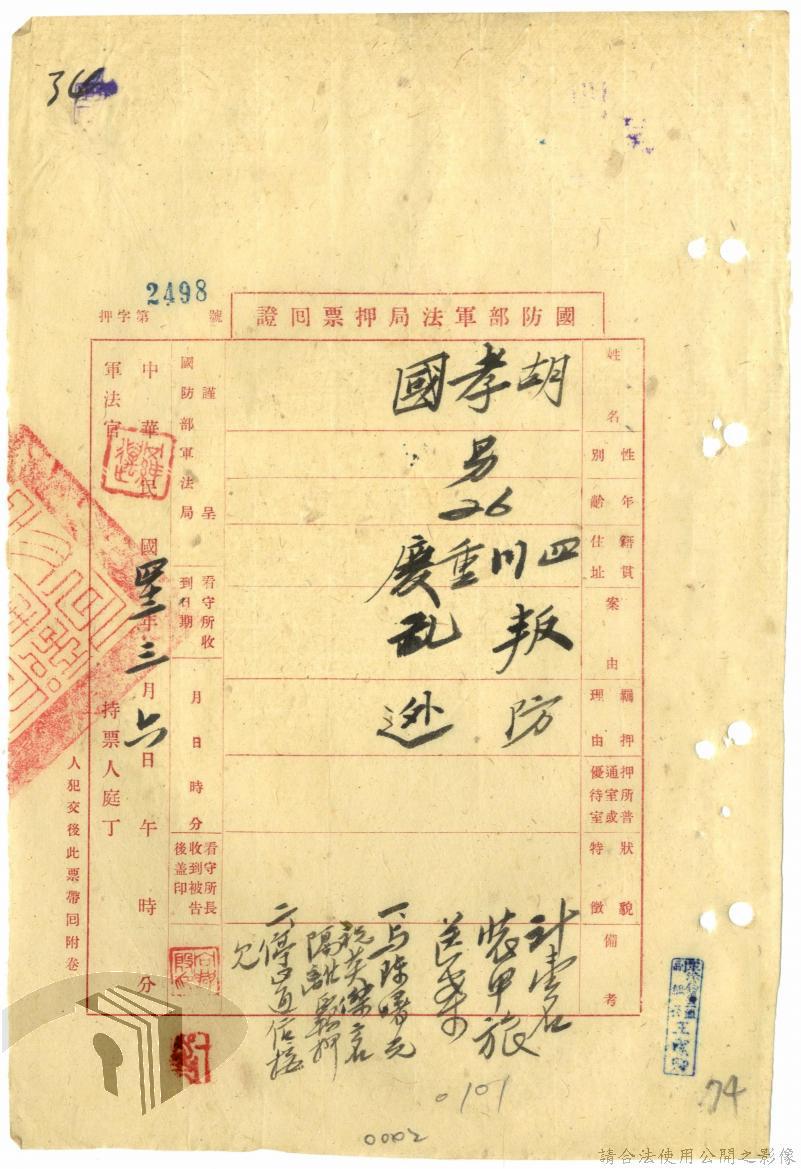 34
押字第2498號
國防部軍法局押票回證
姓名
胡孝國
性別
男
年齡
26
籍貫住址
四川重慶
案由
叛亂
羈押理由
防逃
押所普通室或優待室
狀貌特徵
備考
計壹名
裝甲旅
送來
一、與陳曙元
祝英傑二名
隔離羈押
二、停止通信接
見
謹呈
國防部軍法局
看守所收到日期
月日時分
看守所長收到被告後蓋印
中華民國四三年三月六日午時分
軍法官
持票人庭丁
人犯交後此票帶回附卷
0101
74
0002
請合法使用公開之影像